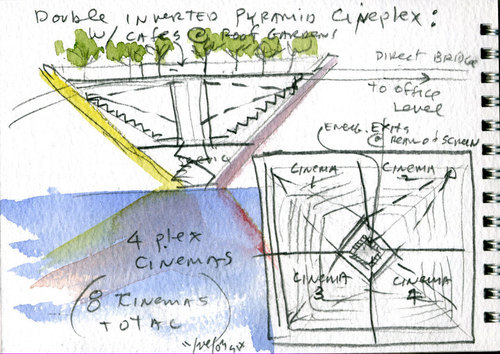 Double Inverted Pyramid Cineplex:
w/ cafes @ roof gardens
Direct Bridge
to office
level
Emerg. Exits
@ rear of screen
Cinema
1
Cinema
2
4 plex
Cinemas
Cinema
3
Cinema
4
(8 Cinemas
Total)